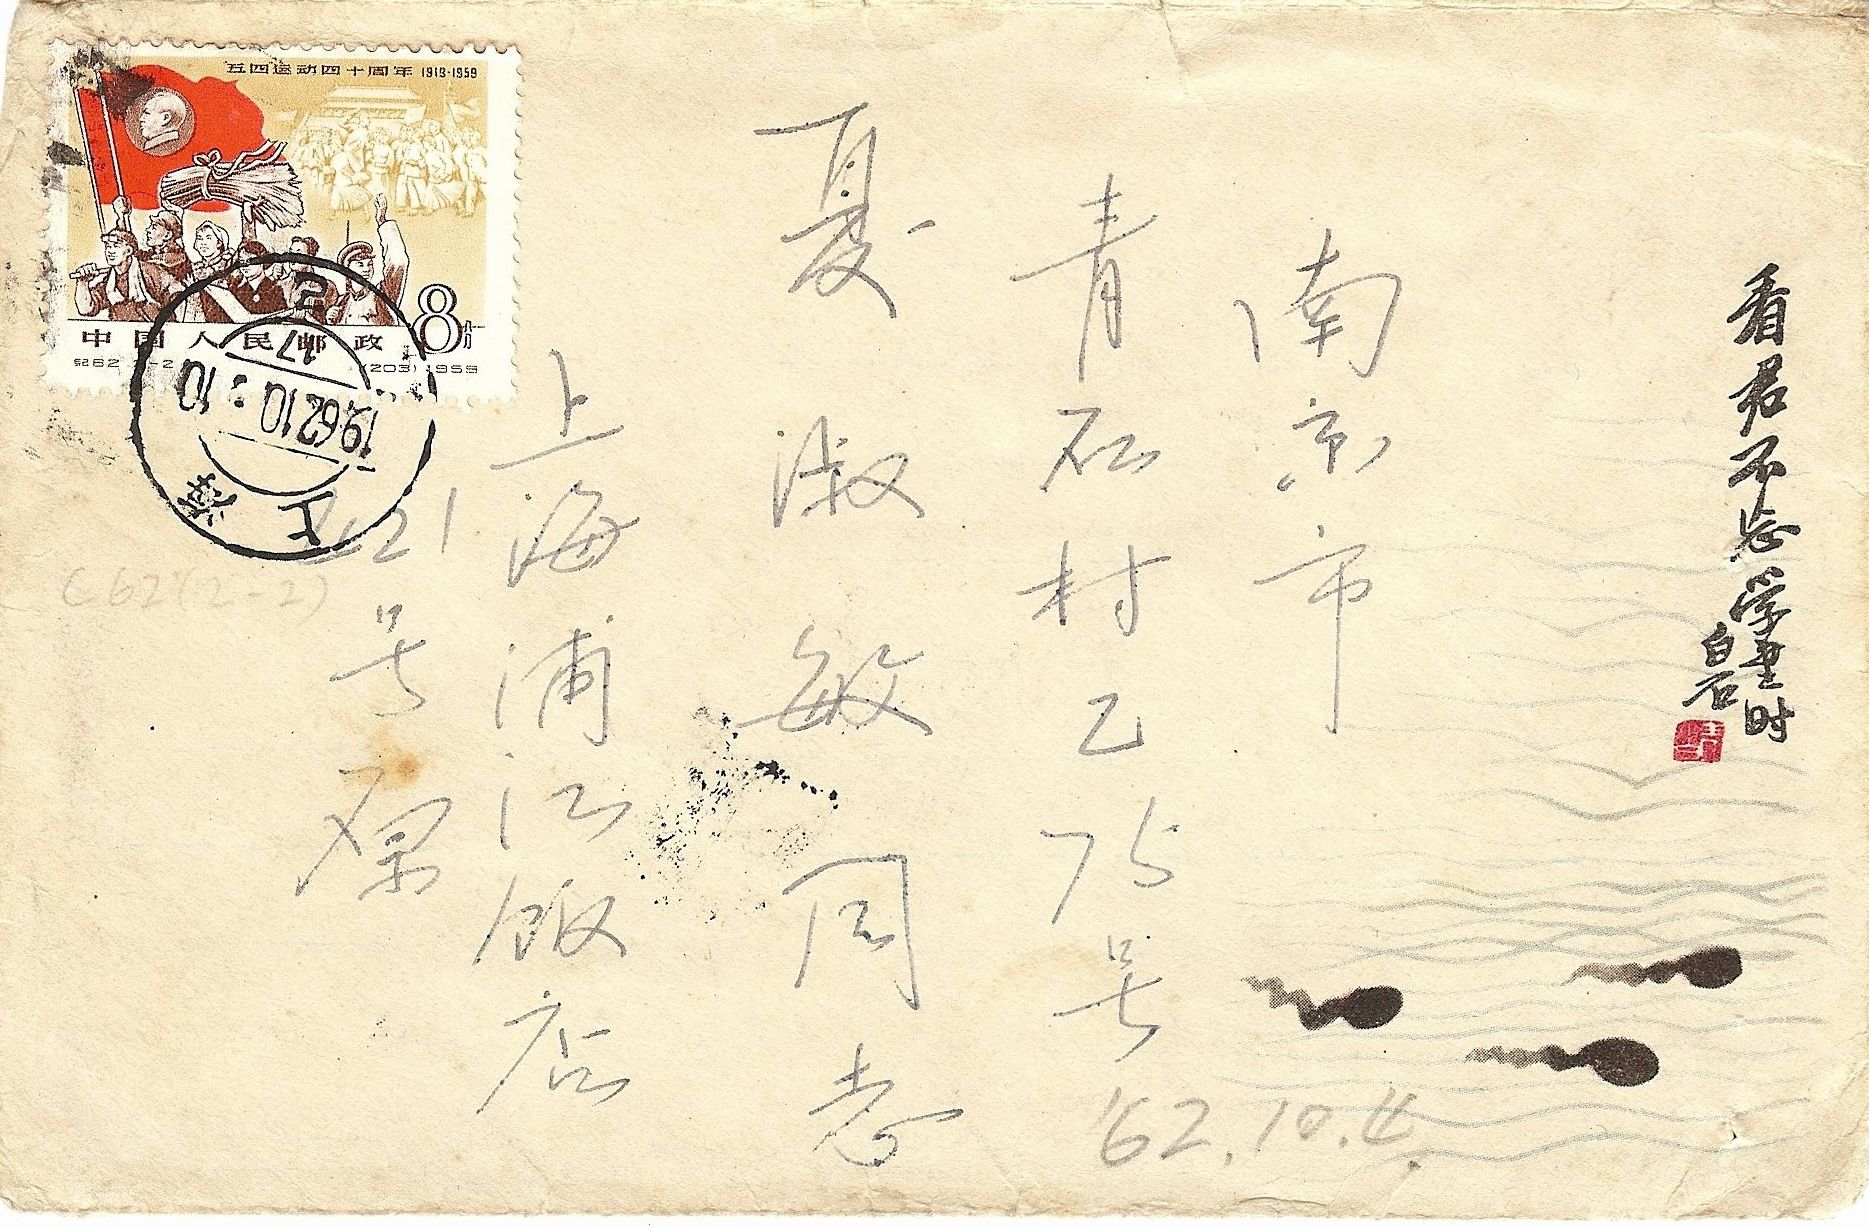 五四运动四十周年 1919-1959
中国人民邮政
8分
纪62 2-2
(203) 1959
上海
1962 10 10
17
C62(2-2)
看君不忘学书时
白石
南京市
青石村乙75号
夏淑敏同志
上海浦江饭店
421号
'62.10.4